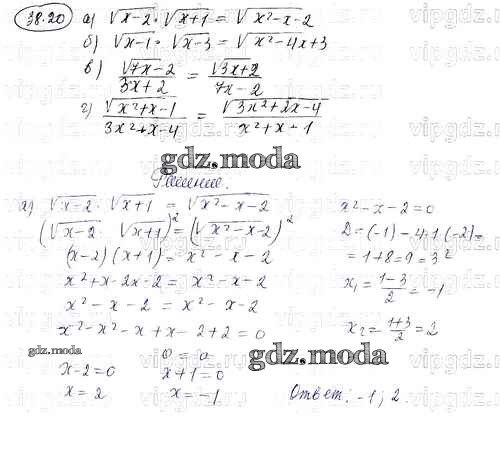 38.20 а) √x-2 · √x+1 = √x²-x-2
б) √x-1 · √x-3 = √x²-4x+3
в) √7x-2 / 3x+2 = √3x+2 / 7x-2
г) √x²+x-1 / 3x²+x-4 = √3x²+2x-4 / x²+x+1
gdz.moda
Решение.
а) √x-2 · √x+1 = √x²-x-2
(√x-2 · √x+1)² = (√x²-x-2)²
(x-2)(x+1) = x²-x-2
x²+x-2x-2 = x²-x-2
x²-x-2 = x²-x-2
x²-x²-x+x-2+2=0
0=0
gdz.moda
x-2=0 x+1=0
x=2 x=-1
x²-x-2=0
D=(-1)-4·1·(-2)=
=1+8=9=3²
x₁=1-3/2=-1
x₂=1+3/2=2
gdz.moda
Ответ: -1; 2.